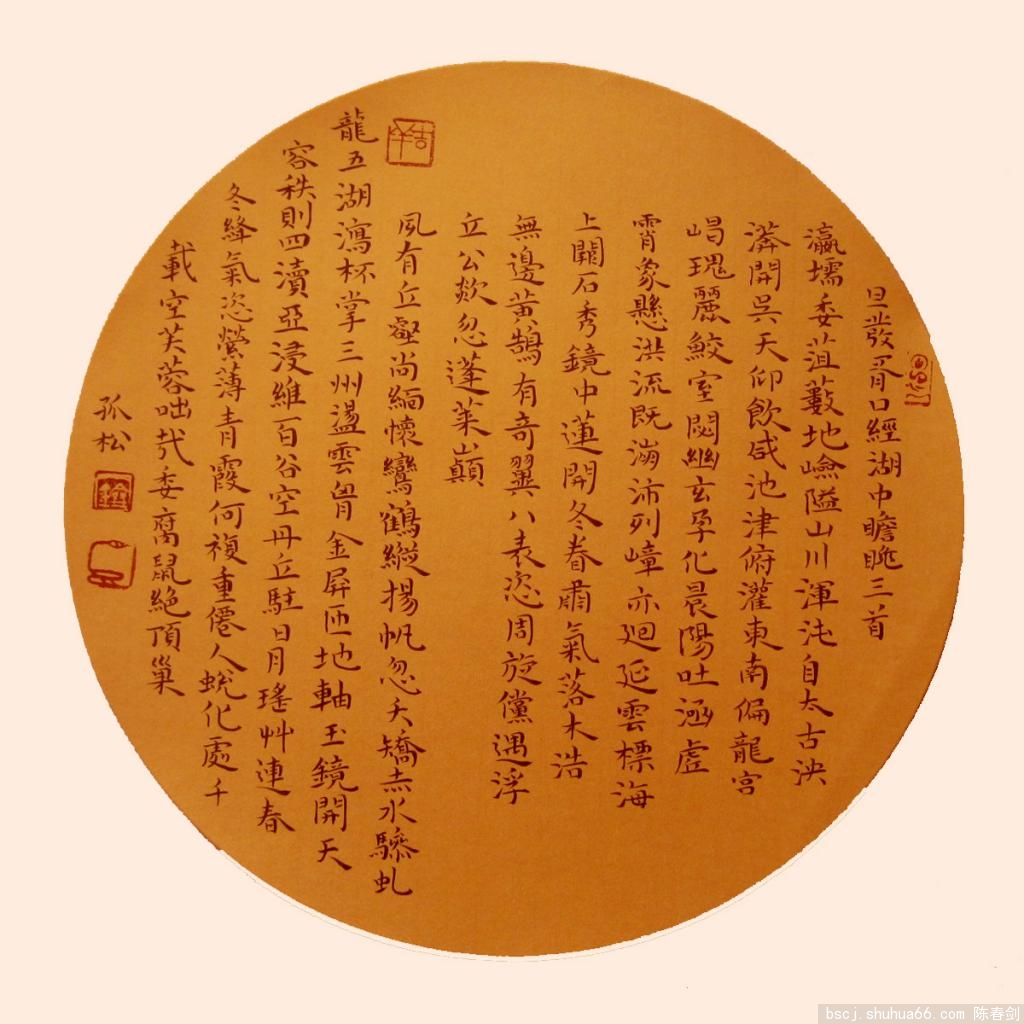 旦發胥口經湖中瞻眺三首
瀛壖委菹藪地嶮隘山川渾沌自太古泱
漭開吳天仰飲咸池津俯灌東南偏龍宮
嵑瑰麗鮫室閟幽玄孕化晨陽吐涵虛
霄象懸洪流既滿沛列嶂亦迴延雲標海
上闕石秀鏡中蓮開冬眷肅氣落木浩
無邊黃鵠有奇翼八表恣周旋儻遇浮
丘公欻忽蓬萊巔
風有丘壑尚緬懷鸞鶴縱揚帆忽夭矯赤水驂虬
龍五湖瀉杯掌三州盪雲胷金屏匝地軸玉鏡開天
容秩則四瀆亞浸維百谷空丹丘駐日月瑤艸連春
冬絳氣恣縈薄青霞何複重僊人蛻化處千
載空芙蓉咄哉委腐鼠絕頂巢
孤松
bscj.shuhua66.com 陈春剑